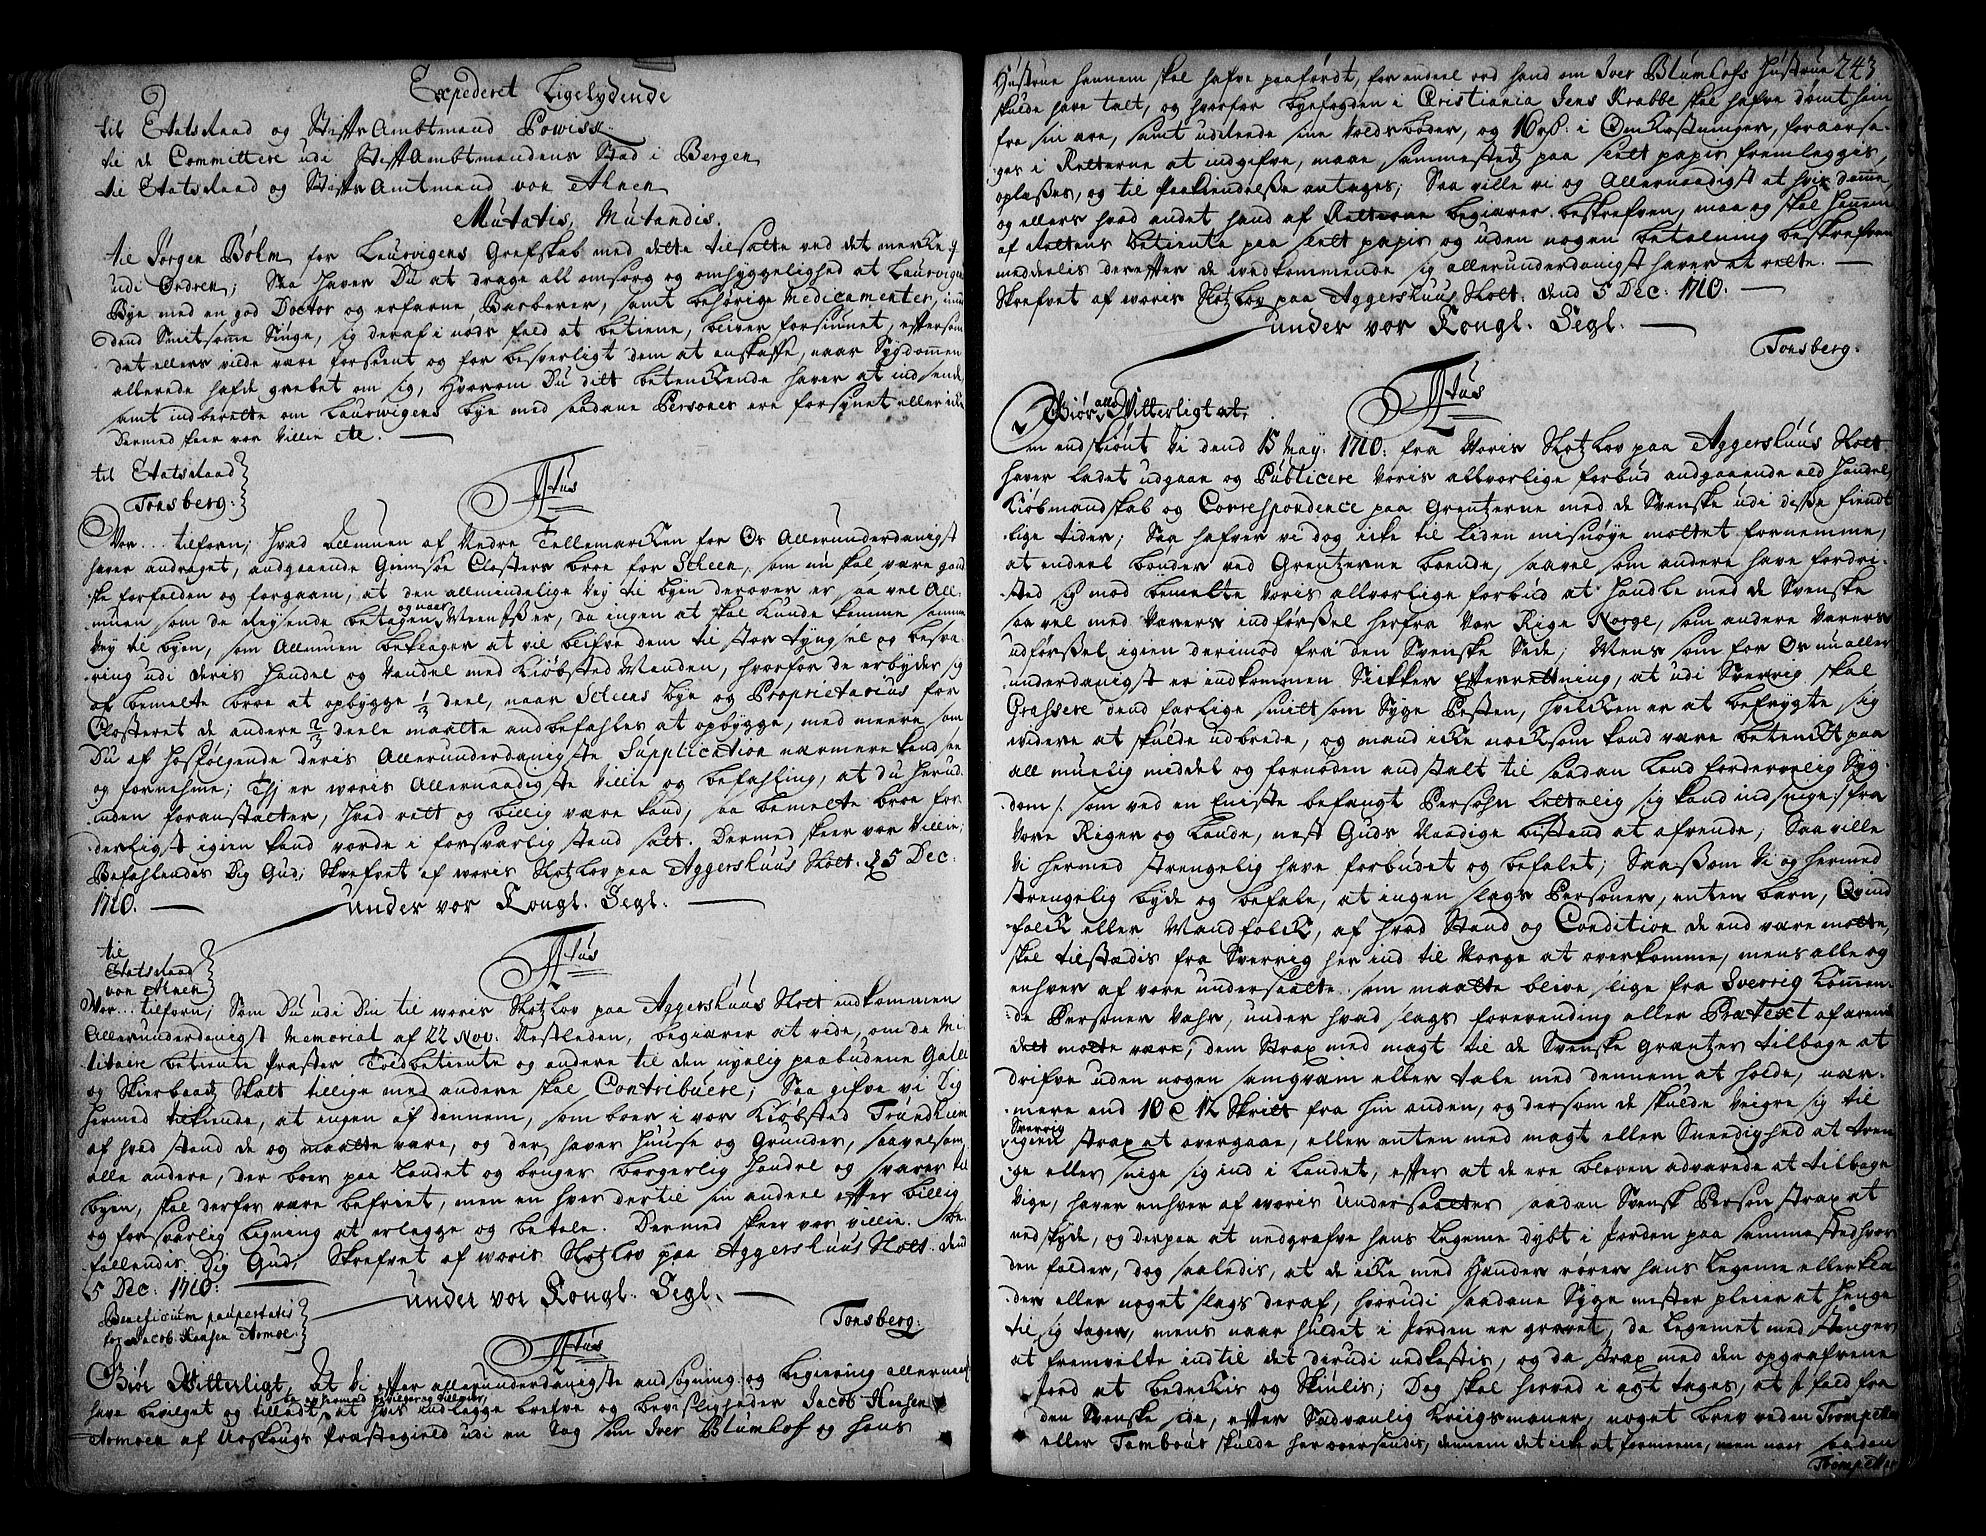 Expederet Ligelydende
til Etatsraad og StiftsAmbtmand Powisk.
til de Committere udi StiftAmbtmandens Sted i Bergen
til Etatsraad og StiftsAmtmand von Ahnen
Mutatis, Mutandis.
til Jørgen Bøhm for Laurvigens Grefskab med dette tilsatte ved det merke
udi Ordren; Saa haver Du at drage all omsorg og omhyggelighed at Laurvigens
Bye med en god Doctor og erfarne Barberer, samt behørige Medicamenter, imod
dend Smitsomme Siuge, sig deraf i nøds fald at betiene, bliver forsiunet, eftersom
det ellers vilde være forseent og for besverligt dem at anskaffe, naar Sygdommen
allerede hafde grebet om sig, hvorom Du dit betenckende haver at indsende
samt indberette om Laurwigens bye med saadane Personer ere forsynet eller icke
Dermed skeer vor Villie etc.
til Etatsraad
Tonsberg.
Atus
Vor... tilforn; hvad Allmuen af Nedre Tellemarcken for Os Allerunderdanigst
haver andraget, angaaende Giemsøe Closters broe for Scheen, som nu skal være gand-
ske forfalden og forgaaen, at den allmindelige Vej til byen derover er, saa vel All-
muen som de Reysende betagen, og naar Meenisß er, da ingen at skal kunde komme samme
Vej til byen, som Allmuen beklager at vil blifve dem til stor tyngsel og besvæ-
ring udi deris handel og Vandel med Kiøbsted Manden, hvorfor de erbyder sig
af bemelte broe at opbygge 1/3 deel, naar Scheens bye og Proprietarius for
Closteret de andre 2/3 deele maatte andbefahles at opbygge, med meere som
Du af hosfølgende deris Allerunderdanigste Supplication nærmere hand see
og fornehme; Thj er woris Allernaadigste Villie og befahling, at du herud-
inden foranstalter, hvad rett og billig være kand, saa bemelte broe for-
derligst igien kand vorde i forsvarlig stand satt. Dermed skeer vor Villie;
Befahlendes Dig Gud; Skrefvet af woris Slotzlov paa Aggershuus Slott. d 5 Dec:
1710.
under vor Kongl. Segl.
til
Etatsraad
von Ahnen
Atus
Vor... tilforn; Som Du udi Din til woris Slotzlov paa Aggershuus Slott indkommen
Allerunderdanigst Memorial af 22 Nov. Nestleden, begiærer at vide, om de Mi-
litaire betiente Præster Toldbetiente og andere til den nyelig paabudene Galli
og Skierbaadz Skatt tillige med andere skal Contribuere; Saa gifve vi Dig
hermed tilkiende, at ingen af dennem, som boer i vor Kiøbsted Trundhiem
af hvad stand de og maatte være, og der haver Huuse og Grunder, saavelsom
alle andere, der boer paa Landet og bruger borgerlig handel og svarer til
byen, skal derfor være befriet, men en hver dertil sin andeel efter billig
og forsvarlig ligning at erlegge og betale. Dermed skeer vor villie. Be-
fallendis Dig Gud, Skrefvet af woris Slotzlov paa Aggershuus Slott. dend
5 Dec: 1710:
under vor Kongl. Segl.
Tonsberg.
Beneficium paupertatis
for Jacob Hansen Aamoe.
Atus
Giør Witterligt, At Vi efter allerunderdanigste andsøgning og begiering allernaad
have bevilget og tilladt, saa og hermed bevilger og tillader, at hvis indlegge brefve og bevisligheder Jacob Hansen
Aamoen af Urskougs Præstegield udi en Sag som Iver Blumhof og hans
243.
Høstrue hannem skal hafve paaførdt, for endeel ord hand om Iver Blumhofs Høstrue
skulde have talt, og hvorfor byefogden i Cristiania Jens Krabbe skal hafve dømt ham
fra sin ære, samt udleede sine Voldsbøder, og 16 rd. i Omkostninger, foraarsa-
ges i Retterne at indgifve, maae sammesteds paa slett papir fremleggis,
oplæses, og til paakiendelse antages; Saa ville vi og Allernaadigst at hvis domme
og ellers hvad andet hand af Retterne begiærer beskrefven, maa og skal hannem
af Rettens betiente paa slett papir og uden nogen betalning beskrefven
meddelis derefter de wedkommende sig allerunderdanigst haver at rette.
Skrefvet af woris Slotzlov paa Aggershuus Slott. dend 5 Dec: 1710.
under vor Kongl. Segl.
Tonsberg.
Atus
Giør alle Vitterligt at,
Om endskiønt Vi dend 15 May. 1710. fra Woris Slotzlov paa Aggershuus Slott
haver ladet udgaae og Publicere Voris allvorlige forbud andgaaende ald Handel,
Kiøbmandskab og Correspondence paa Grentzerne med de Svenske udi disse fiendt-
lige tider; Saa hafver vi dog icke til liden misnøye mottet fornemme,
at endeel bønder ved Grentzerne boende, saavel som andere have fordri-
sted sig mod bemelte Voris allvorlige forbud at handle med de Svenske
saa vel med Varers indførsel herfra Vor Rige Norge, som andere Varers
udførsel igien derimod fra den Svenske Side; Mens som for Os nu aller
underdanigst er indkommen Sickker Efterrettning, at udi Sverrig skal
Grassere dend farlige smitsom Syge Pesten, hvilcken er at befrygte sig
widere at skulde udbrede, og mand icke nocksom kand være betenckt paa
all muelig middel og fornøden anstalt til saadan land fordervelig Syg-
dom /: som ved en Eniste befængt Persohn lettelig sig kand indsnige :/ fra
Vore Riger og Lande, nest Guds Naadige bistand at afvende; Saa ville
Vi hermed strengelig have forbudet og befalet; Saasom Vi og hermed
strengelig byde og befale, at ingen slags Personer, enten barn, Qvind
folck eller Mandfolck, af hvad Stand og Condition de end være motte,
skal tilstædis fra Sverrig her ind til Norge at overkomme, mens alle og
enhver af vore undersaatte som maatte blive slige fra Sverrig kommen-
de Personer Vahr, under hvad slags forevending eller Prætext af ærend
det motte være, dem Strax med magt til de Svenske Grantzer tilbage at
drifve uden nogen samqvæm eller tale med dennem at holde, nær-
mere end 10 à 12 Skrit fra hin anden, og dersom de skulde veigre sig til
Sverrig igien strax at overgaae, eller enten med magt eller Snedighed at tren-
ge eller snige sig ind i Landet, efter at de ere bleven advarede at tilbage
Vige, haver enhver af woris Undersaatter saadan Svensk Person strax at
nedskyde, og derpaa at nedgrafve hans legeme dybt i Jorden paa sammested hvor
den falder, dog saaledis, at de icke med Hænder rører hans legeme eller klæ-
der eller noget slags deraf, hvorudi saadane Syge mester pleier at henge
til sig tager, mens naar hullet i Jorden er gravet, da legemet med Stænger
at fremvelte indtil det derudi nedkastis, og da strax med den opgrafvene
Jord at bedeckis og Skiulis; Dog skal herved i agt tages, at i fald fra
den Svenske side, efter Sædvanlig Kriigsmaner, noget brev ved en Trompetter
eller Tambour skulde her oversendis, dennem det icke at formeene, men naar saadan
Trompetter